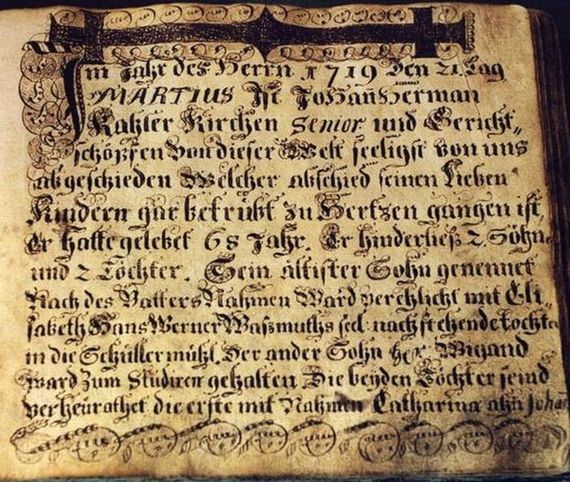 Im Jahr des Herrn 1719 den 21. Tag
MARTIUS Ist Johañ Herman
Kahler Kirchen Senior und Gericht„
schöpfen von dieser Welt seeligst von uns
abgeschieden Welcher abschied seinen Lieben
Kindern gar betrübt zu Hertzen gangen ist
Er hatte gelebet 68 Jahr. Er hinderließ 2. Söhn
und 2 Töchter. Sein ältister Sohn genennet
Nach des Vatters Nahmen Ward verehlicht mit Eli„
sabeth Hans Werner Waßmuths seel: nachstehende tochter
in die Schüller mühl. Der ander Sohn her: Wigand
ward zum Studiren gehalten. Die beyden Töchter seind
verheurathet die erste mit Nahmen Catharina ahn Joha